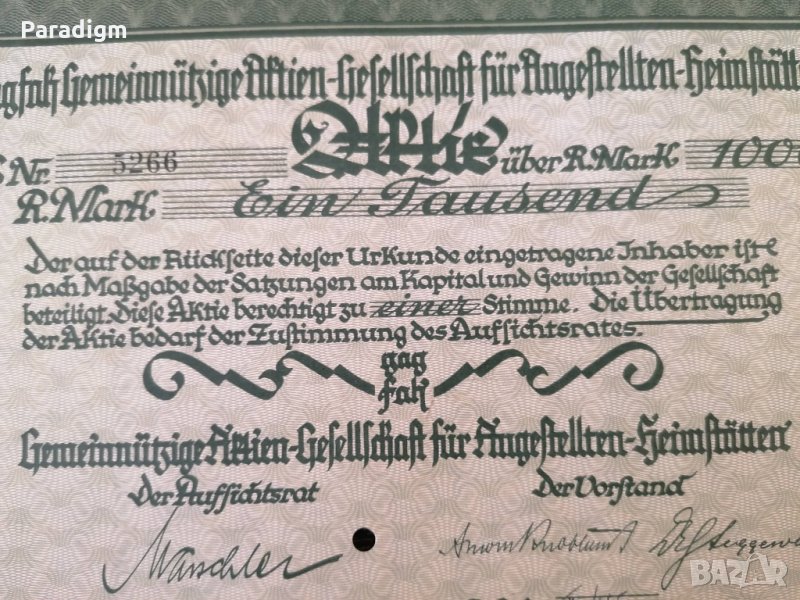 Paradigm
gagfah Gemeinnützige Aktien-Gesellschaft für Angestellten-Heimstätt
Nr. 5266 Aktie über R.Mark 100
R.Mark Ein Tausend
Der auf der Rückseite dieser Urkunde eingetragene Inhaber ist
nach Maßgabe der Satzungen am Kapital und Gewinn der Gesellschaft
beteiligt. Diese Aktie berechtigt zu einer Stimme. Die Übertragung
der Aktie bedarf der Zustimmung des Aufsichtsrates.
gag
fah
Gemeinnützige Aktien-Gesellschaft für Angestellten-Heimstätten
Der Aufsichtsrat Der Vorstand
BAZAR